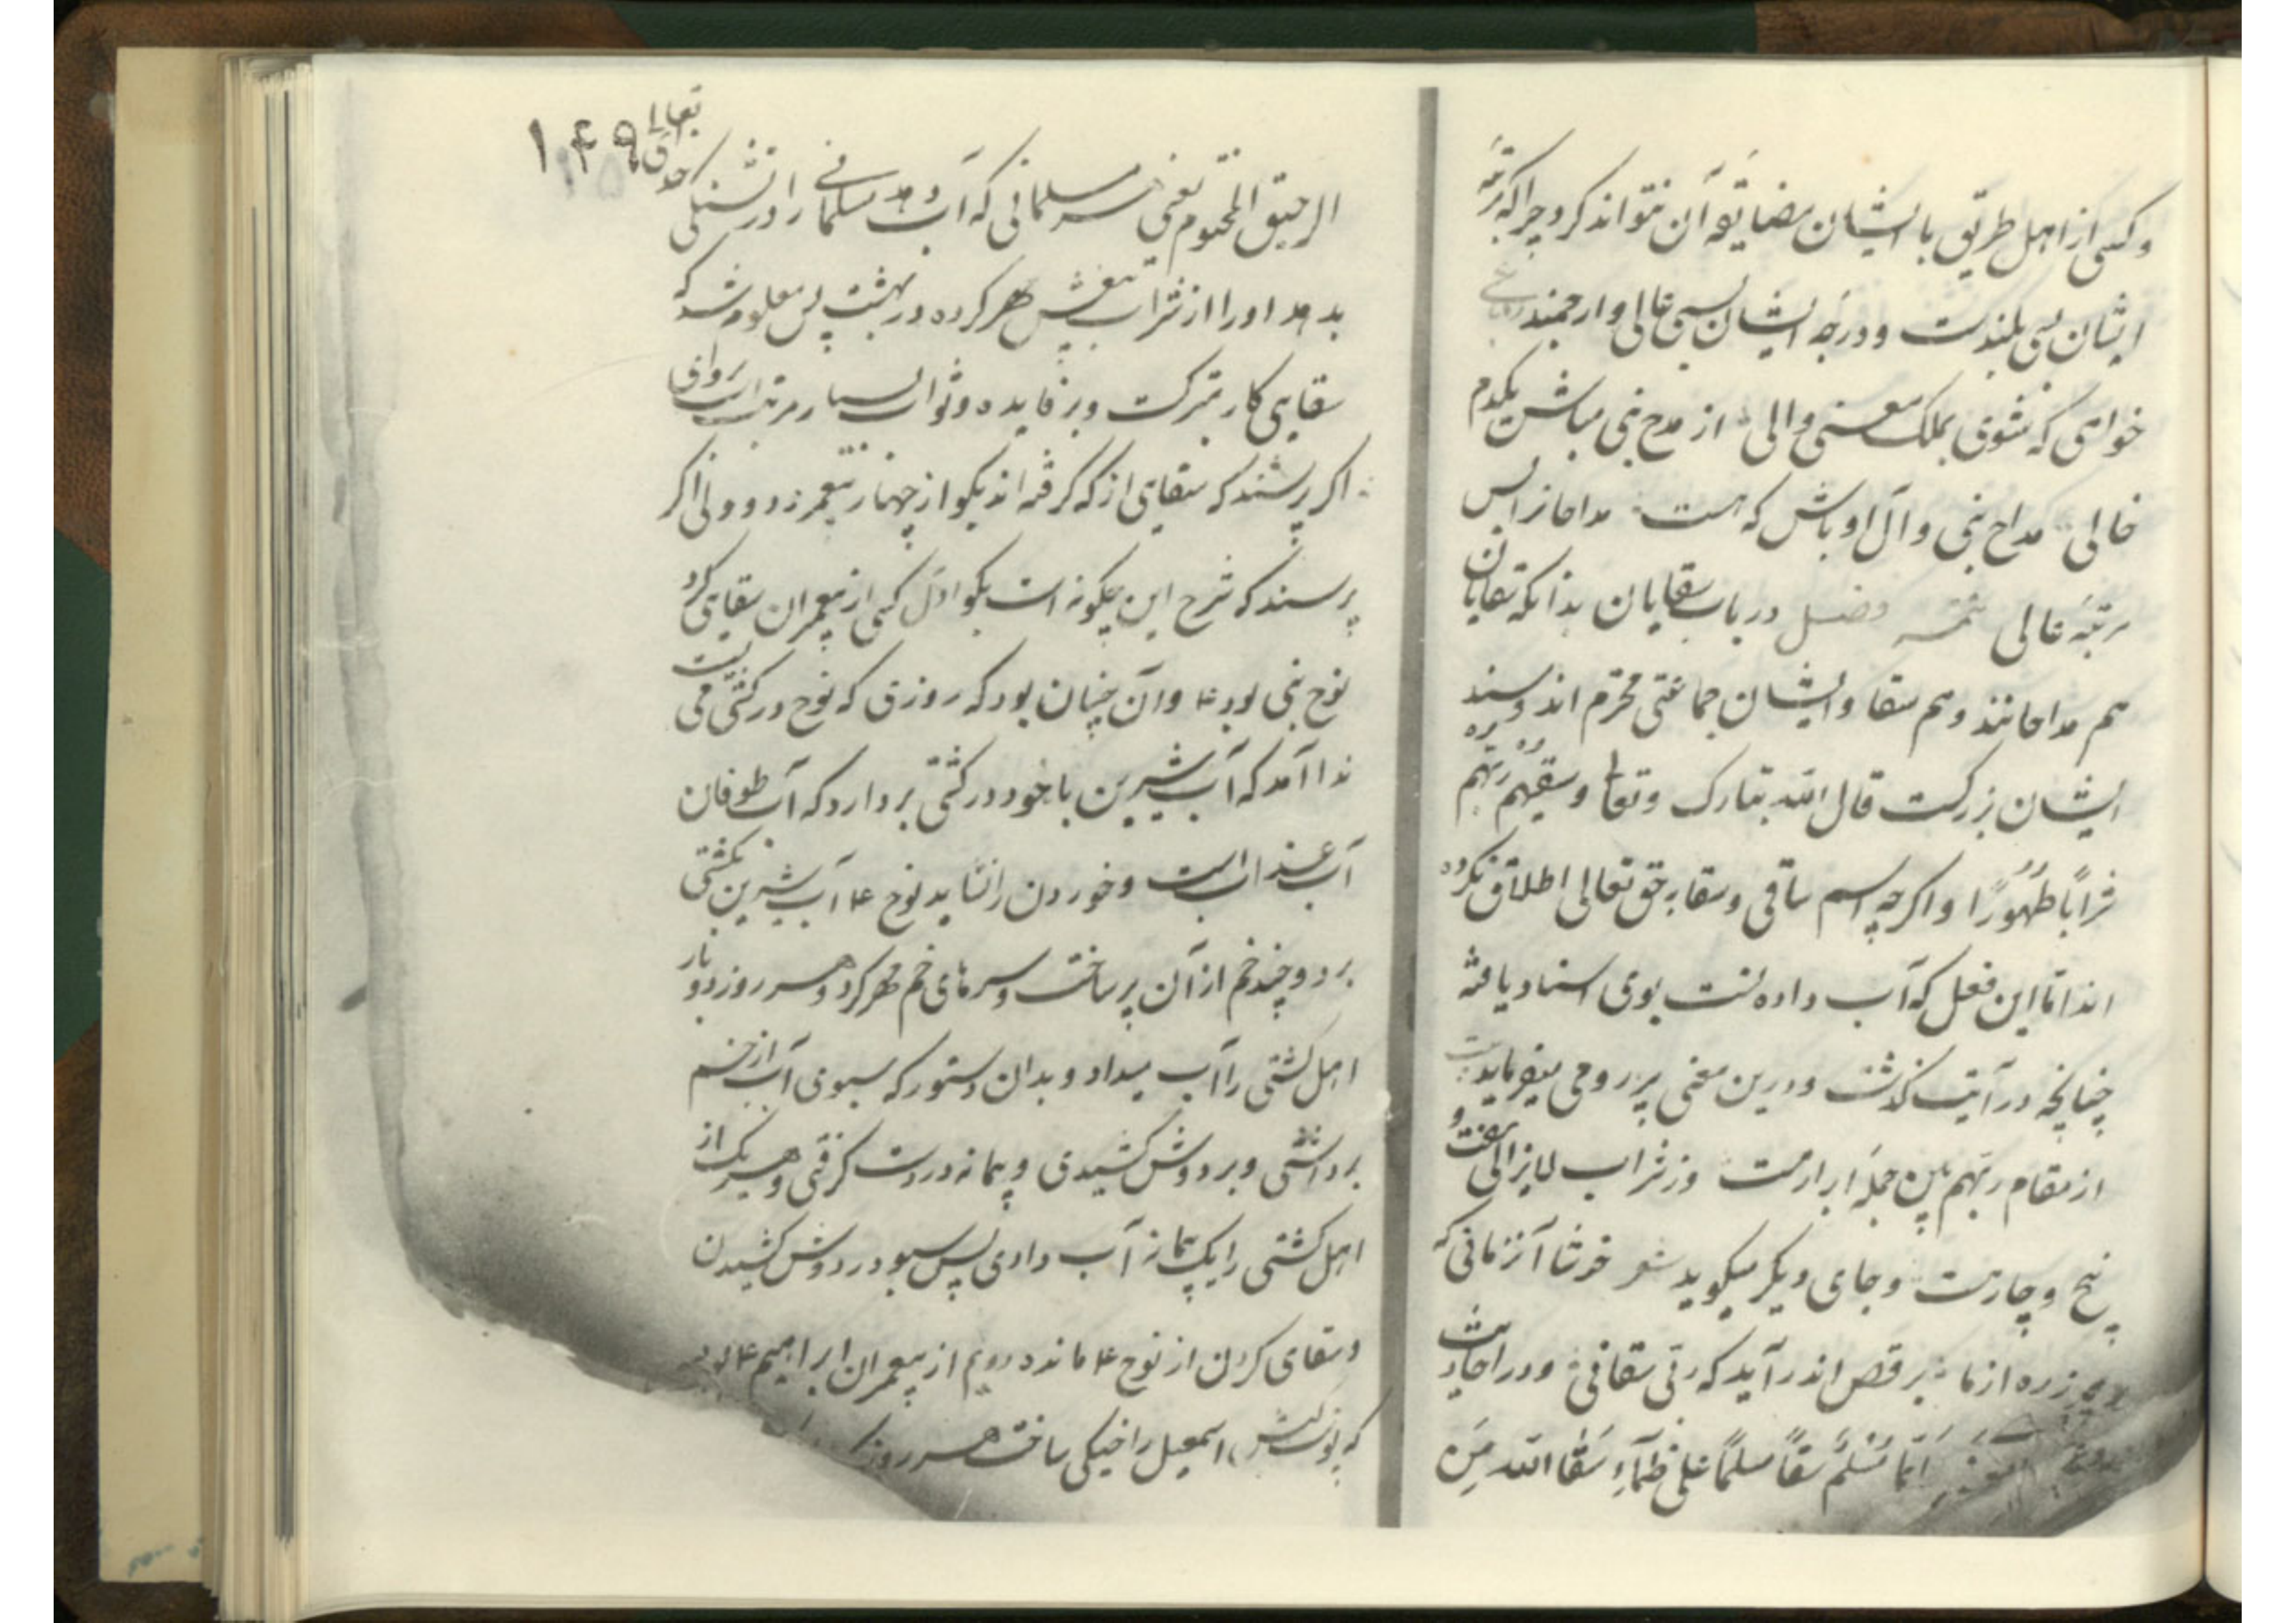 وکسی از اهل طریق با ایشان مضایقه آن نتواند کرد چرا که مرتبه
ایشان بسی بلندست و درجه ایشان بسی عالی و ارجمند رباعی
خواهی که شوی بملک معنی والی از مدح نبی مباش یکدم
خالی مداح نبی و آل او باش که هست مداحانرا بس
مرتبه عالی فصل در باب سقایان بدانکه سقایان
هم مداحانند و هم سقا و ایشان جماعتی محترم اند و سند
ایشان بزرگست قال الله تبارک و تعالی وسقیهم ربهم
شرابًا طهورًا واکرچه اسم ساقی و سقا بر حق تعالی اطلاق نکرده
اند اما این فعل که آب داده نست بوی اسناد یافته
چنانچه در آیت گذشت و درین معنی پیر رومی میفرماید بیت
از مقام ربهم بین جمله ابرار مست وز شراب لایزالی هفت و
پنج و چار مست و جای دیکر میکوید شعر خوشا آنزمانی که
هر ذره از ما برقص اندر آید که ربی سقانی و در احادیث
ایما مسلم سقاً مسلمًا علی ظمآءِ سقا الله من
۱۴۹
تعالی
الرحیق المختوم یعنی هر مسلمانی که آب دهد مسلمانی را در تشنکی خدای
بدهد او را از شراب بیغش مهر کرده در بهشت پس معلوم شد که
سقایی کار بتبرکست و پر فایده و ثواب بسیار مرتب است برو اما
اکر پرسند که سقایی از که گرفته اند بکو از چهار پیغمبر و دو ولی اکر
پرسند که شرح این چکونه است بکو اول کسی از پیغمبران سقایی کرد
نوح نبی بود ع و آن چنان بود که روزی که نوح در کشتی می نشست
ندا آمد که آب شیرین با خود در کشتی بردارد که آب طوفان
آب عذاب است و خوردن را نشاید نوح ع آب شیرین بکشتی
برد و چند خم از آن پر ساخت و سرهای خم مهر کرد و هر روز دو بار
اهل کشتی را آب میداد و بدان دستور که سبوی آب از خم
برداشتی و بر دوش کشیدی و پیمانه در دست گرفتی و هر یک از
اهل کشتی را یک پیمانه آب دادی پس سبو در دوش کشیدن
و سقایی کردن از نوح ع مانده دویم از پیغمبران ابراهیم ع بود
که پوست کبش اسمعیل را خیکی ساخت هر روز